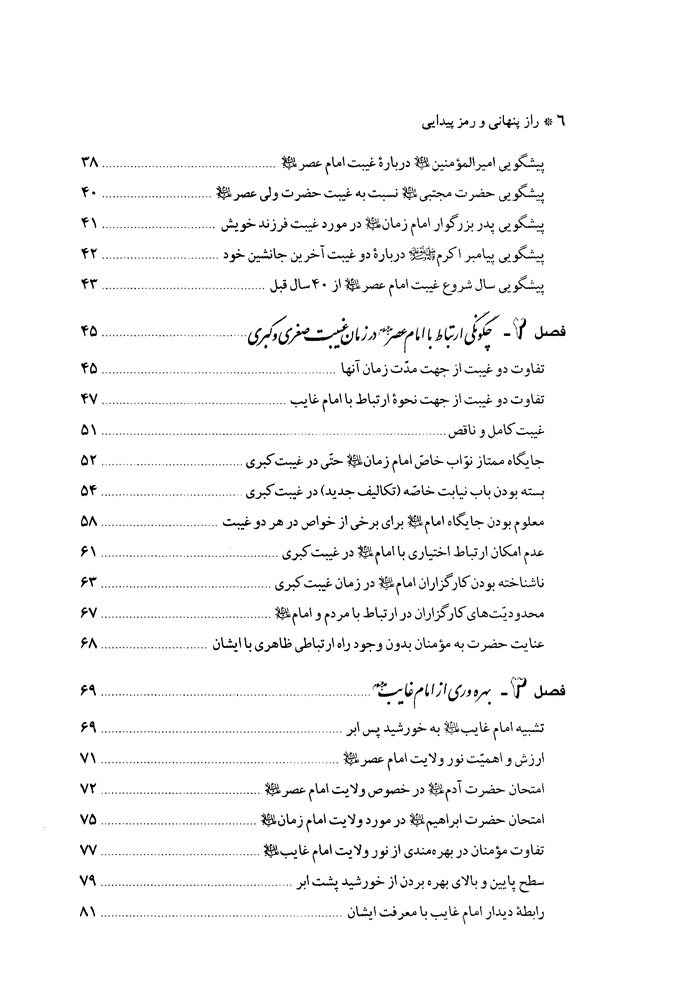 ۶ * راز پنهانی و رمز پیدایی
پیشگویی امیرالمؤمنین دربارهٔ غیبت امام عصر ........ ۳۸
پیشگویی حضرت مجتبی نسبت به غیبت حضرت ولی عصر ........ ۴۰
پیشگویی پدر بزرگوار امام زمان در مورد غیبت فرزند خویش ........ ۴۱
پیشگویی پیامبر اکرم دربارهٔ دو غیبت آخرین جانشین خود ........ ۴۲
پیشگویی سال شروع غیبت امام عصر از ۴۰ سال قبل ........ ۴۳
فصل ۲ - چگونگی ارتباط با امام عصر در زمان غیبت صغری و کبری ........ ۴۵
تفاوت دو غیبت از جهت مدّت زمان آنها ........ ۴۵
تفاوت دو غیبت از جهت نحوهٔ ارتباط با امام غایب ........ ۴۷
غیبت کامل و ناقص ........ ۵۱
جایگاه ممتاز نوّاب خاصّ امام زمان حتّی در غیبت کبری ........ ۵۲
بسته بودن باب نیابت خاصّه (تکالیف جدید) در غیبت کبری ........ ۵۴
معلوم بودن جایگاه امام برای برخی از خواص در هر دو غیبت ........ ۵۸
عدم امکان ارتباط اختیاری با امام در غیبت کبری ........ ۶۱
ناشناخته بودن کارگزاران امام در زمان غیبت کبری ........ ۶۳
محدودیّت‌های کارگزاران در ارتباط با مردم و امام ........ ۶۷
عنایت حضرت به مؤمنان بدون وجود راه ارتباطی ظاهری با ایشان ........ ۶۸
فصل ۳ - بهره وری از امام غایب ........ ۶۹
تشبیه امام غایب به خورشید پس ابر ........ ۶۹
ارزش و اهمیّت نور ولایت امام عصر ........ ۷۱
امتحان حضرت آدم در خصوص ولایت امام عصر ........ ۷۲
امتحان حضرت ابراهیم در مورد ولایت امام زمان ........ ۷۵
تفاوت مؤمنان در بهره‌مندی از نور ولایت امام غایب ........ ۷۷
سطح پایین و بالای بهره بردن از خورشید پشت ابر ........ ۷۹
رابطهٔ دیدار امام غایب با معرفت ایشان ........ ۸۱